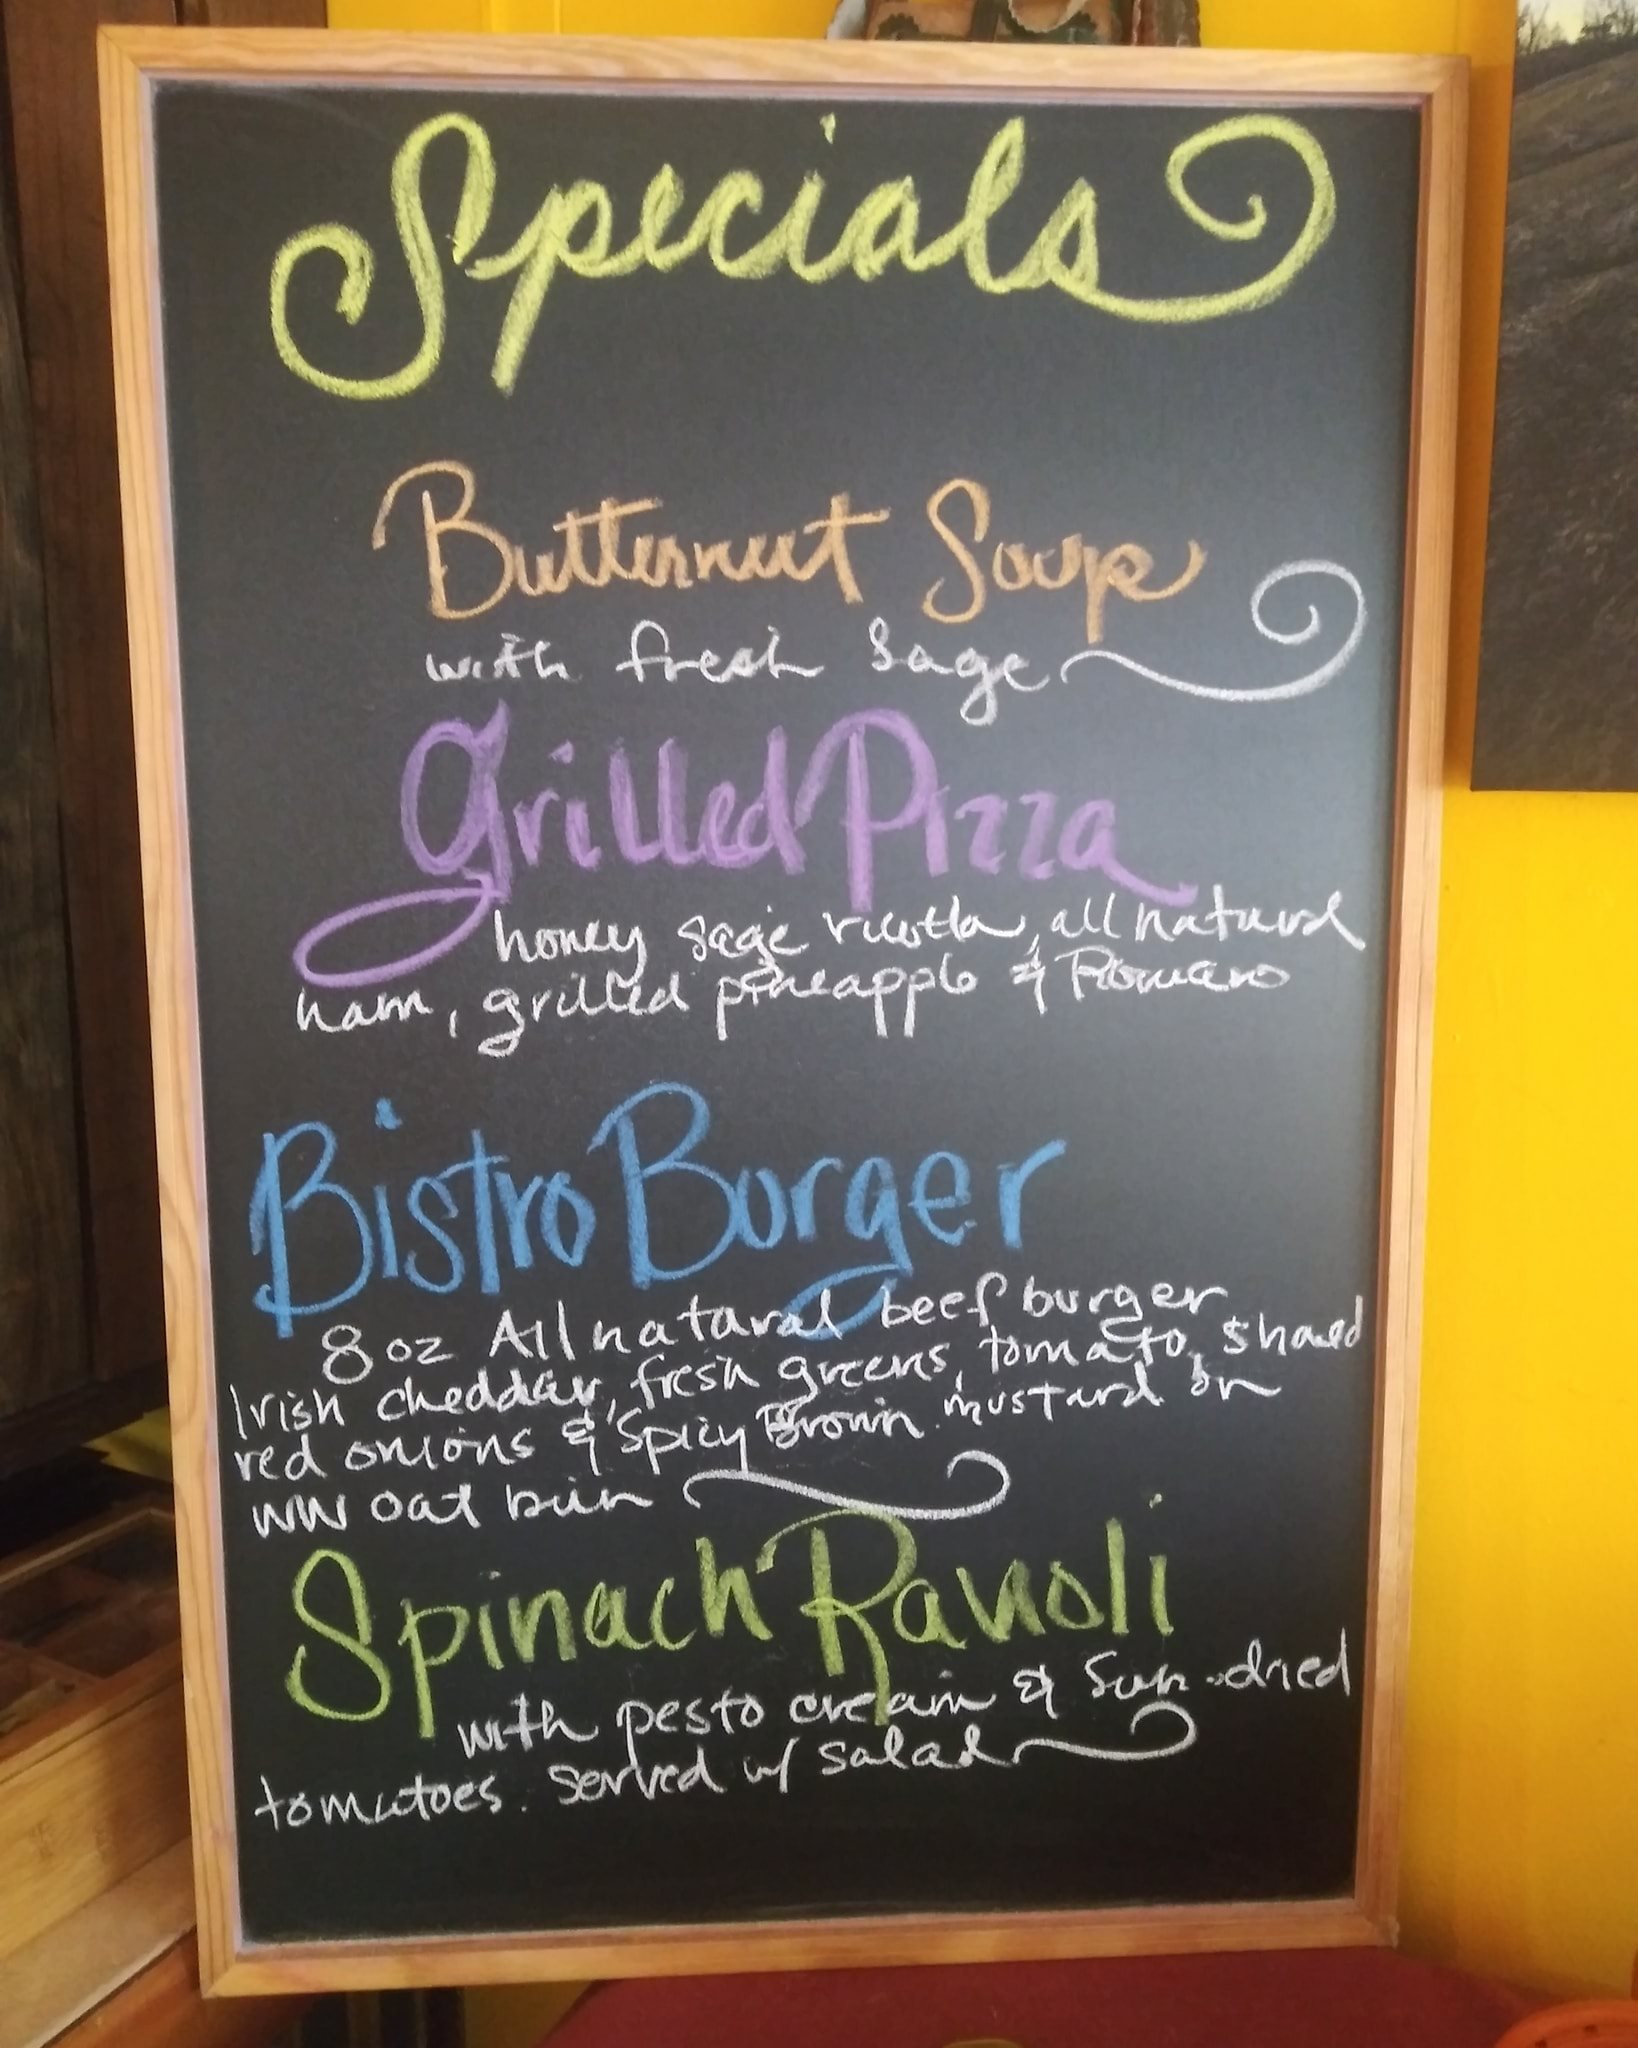 Specials
Butternut Soup
with fresh Sage
Grilled Pizza
honey sage ricotta, all natural
ham, grilled pineapple & Romano
Bistro Burger
8 oz All natural beef burger
Irish cheddar, fresh greens, tomato, shaved
red onions & Spicy Brown mustard on
WW oat bun
Spinach Ravioli
with pesto cream & Sun-dried
tomatoes. Served w/ salad